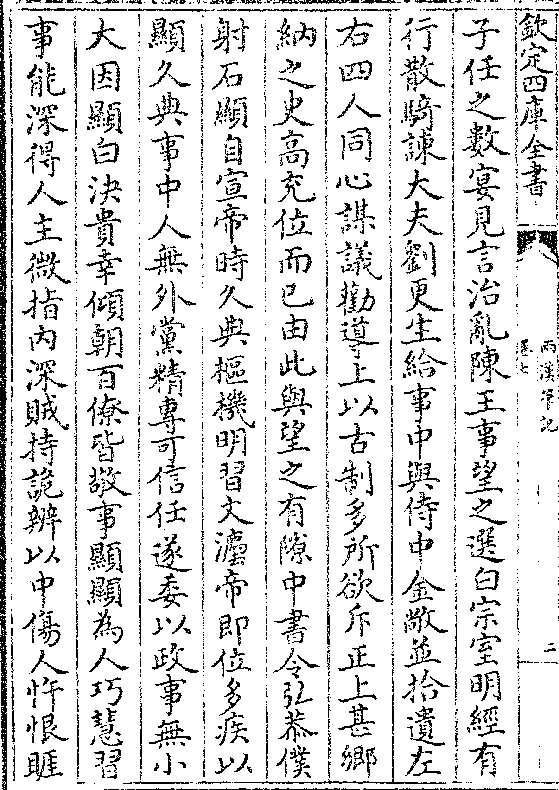 欽定四庫全書
兩漢筆記
卷七
二
子任之數宴見言治亂陳王事望之選白宗室明經有
行散騎諫大夫劉更生給事中與侍中金敞並拾遺左
右四人同心謀議勸導上以古制多所欲斥正上甚鄉
納之史高充位而已由此與望之有隙中書令弘恭僕
射石顯自宣帝時久典樞機明習文灋帝即位多疾以
顯久典事中人無外黨精專可信任遂委以政事無小
大因顯白決貴幸傾朝百僚皆敬事顯顯為人巧慧習
事能深得人主微指內深賊持詭辨以中傷人忤恨睚